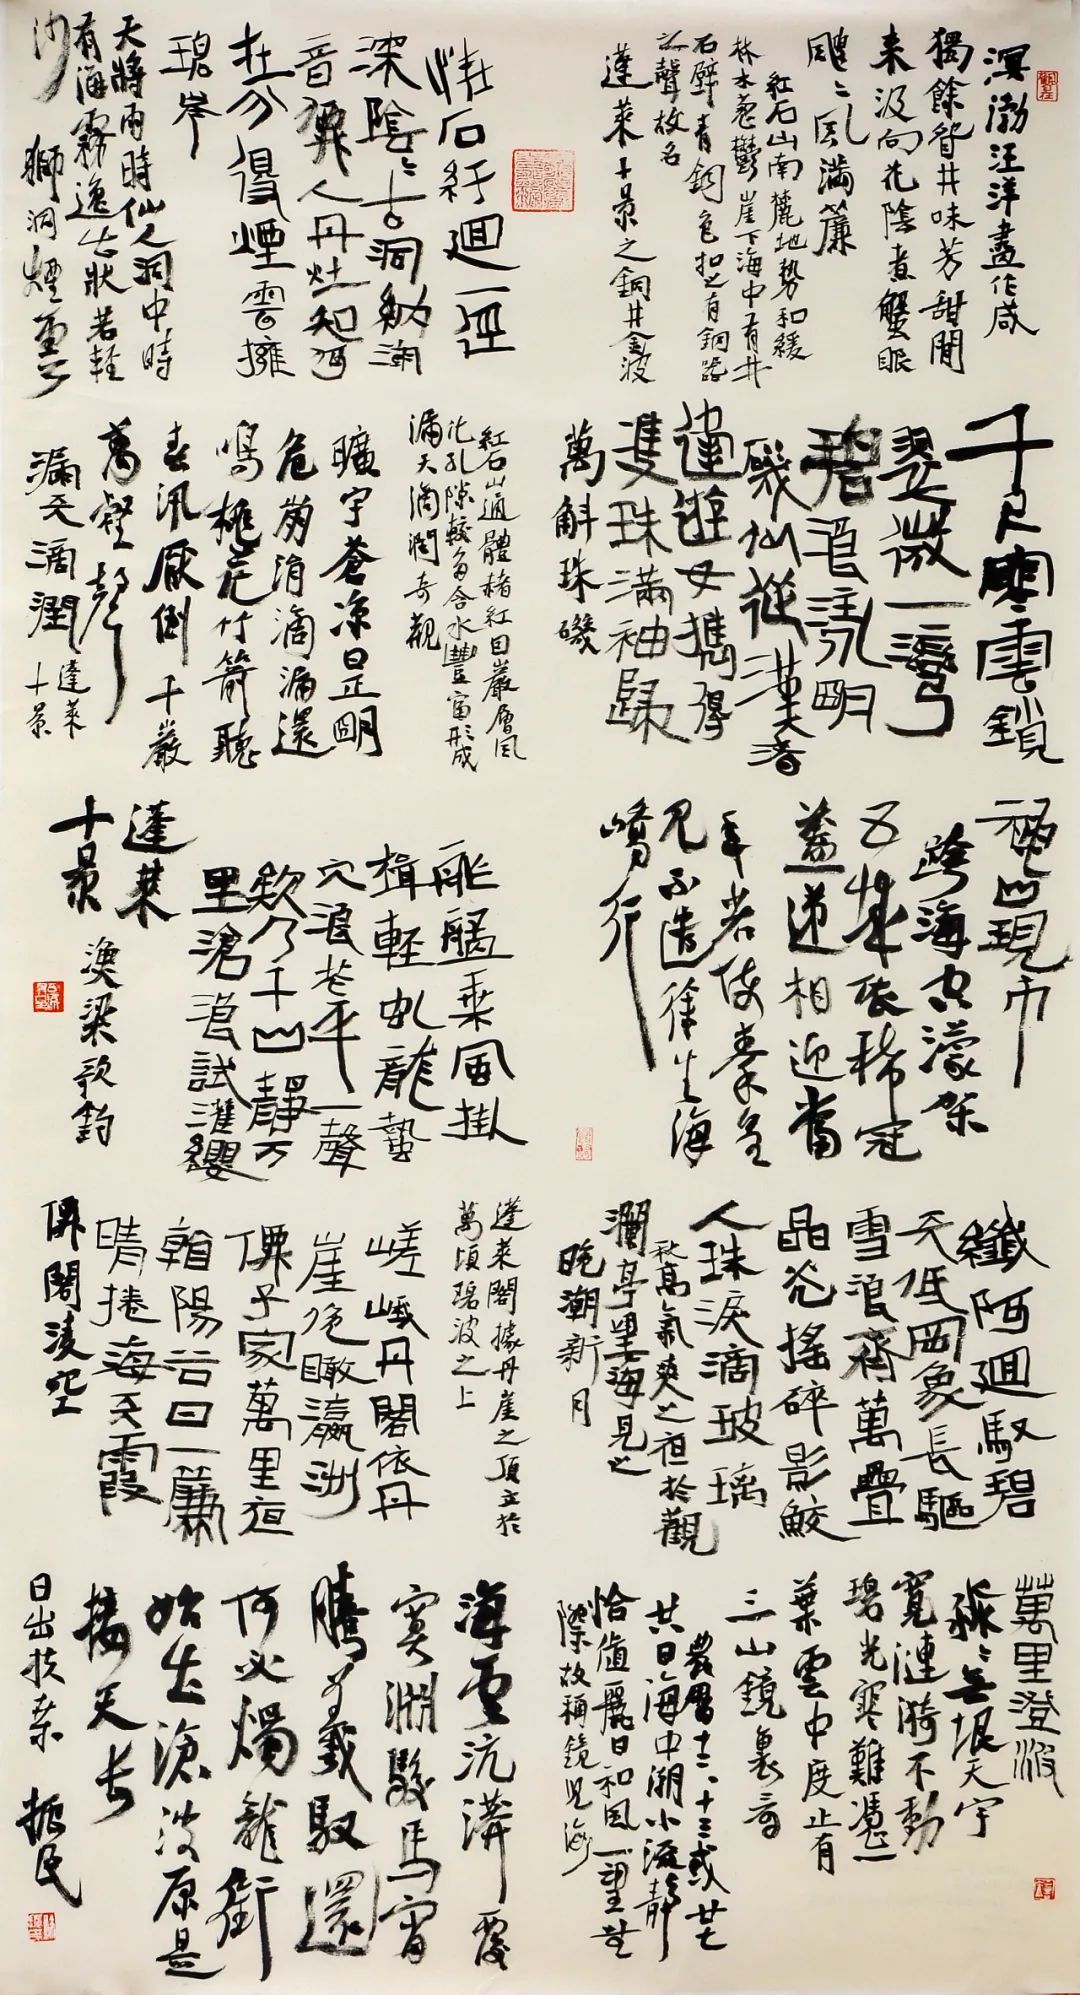 溟渤汪洋盡作咸
獨餘智井味芳甜閒
来汲向花陰煮蟹眼
颼〻風滿簾
紅石山南麓地勢和緩
林木葱鬱崖下海中有井
石壁青銅色扣之有銅器
之聲故名
蓬萊十景之銅井金波
怪石紆迴一逕
深陰〻古洞勢潮
音猶人丹灶知何
在分得煙雲擁
碧岑
天將雨時仙人洞中時
有海霧逸出狀若輕
沙
獅洞煙雲
千尺寒雲鎖
翠微一灣
碧浪漾明
璣仙從漢渚
逢遊女攜得
雙珠滿袖歸
萬斛珠璣
紅石山通體赭紅因巖層風
化孔隙較多含水豐富形成
漏天滴潤奇觀
曠宇蒼凉日正明
危崩涓滴漏還
鳴桃花竹箭聽
春汛厭倒千巖
萬壑聲
漏天滴潤
蓬萊
十景
神山現市
跨海空濛架
五城衣稀冠
蓋遞相迎當
年若使秦皇
見不遣徐生海
嶠行
飛艫乘風掛
楫輕虬龍蟄
穴浪花平一聲
欸乃千山靜万
里滄浪試濯纓
蓬萊
十景
漁梁歌釣
纖阿迴馭碧
天低罔象長驅
雪浪齊萬疊
晶光搖碎影鮫
人珠淚滴玻璃
秋高氣爽之夜於觀
瀾亭望海見之
晚潮新月
蓬萊閣據丹崖之頂立於
萬頃碧波之上
嵯峨丹閣依丹
崖俯瞰瀛洲
僊子家萬里夜
翰陽谷日一簾
晴捲海天霞
僊閣凌空
萬里澄波
淼〻無垠天宇
寬漣漪不動
碧光寒難憑一
葉雲中度止有
三山鏡裏看
農曆十二、十三或廿七
廿日海中潮小流靜
恰值麗日和風一望無
際故稱鏡見海
海雲沆漭覆
冥淵駿馬宵
騰羲馭還
何必燭龍銜
始出滄波原是
接天長
日出扶桑
振民